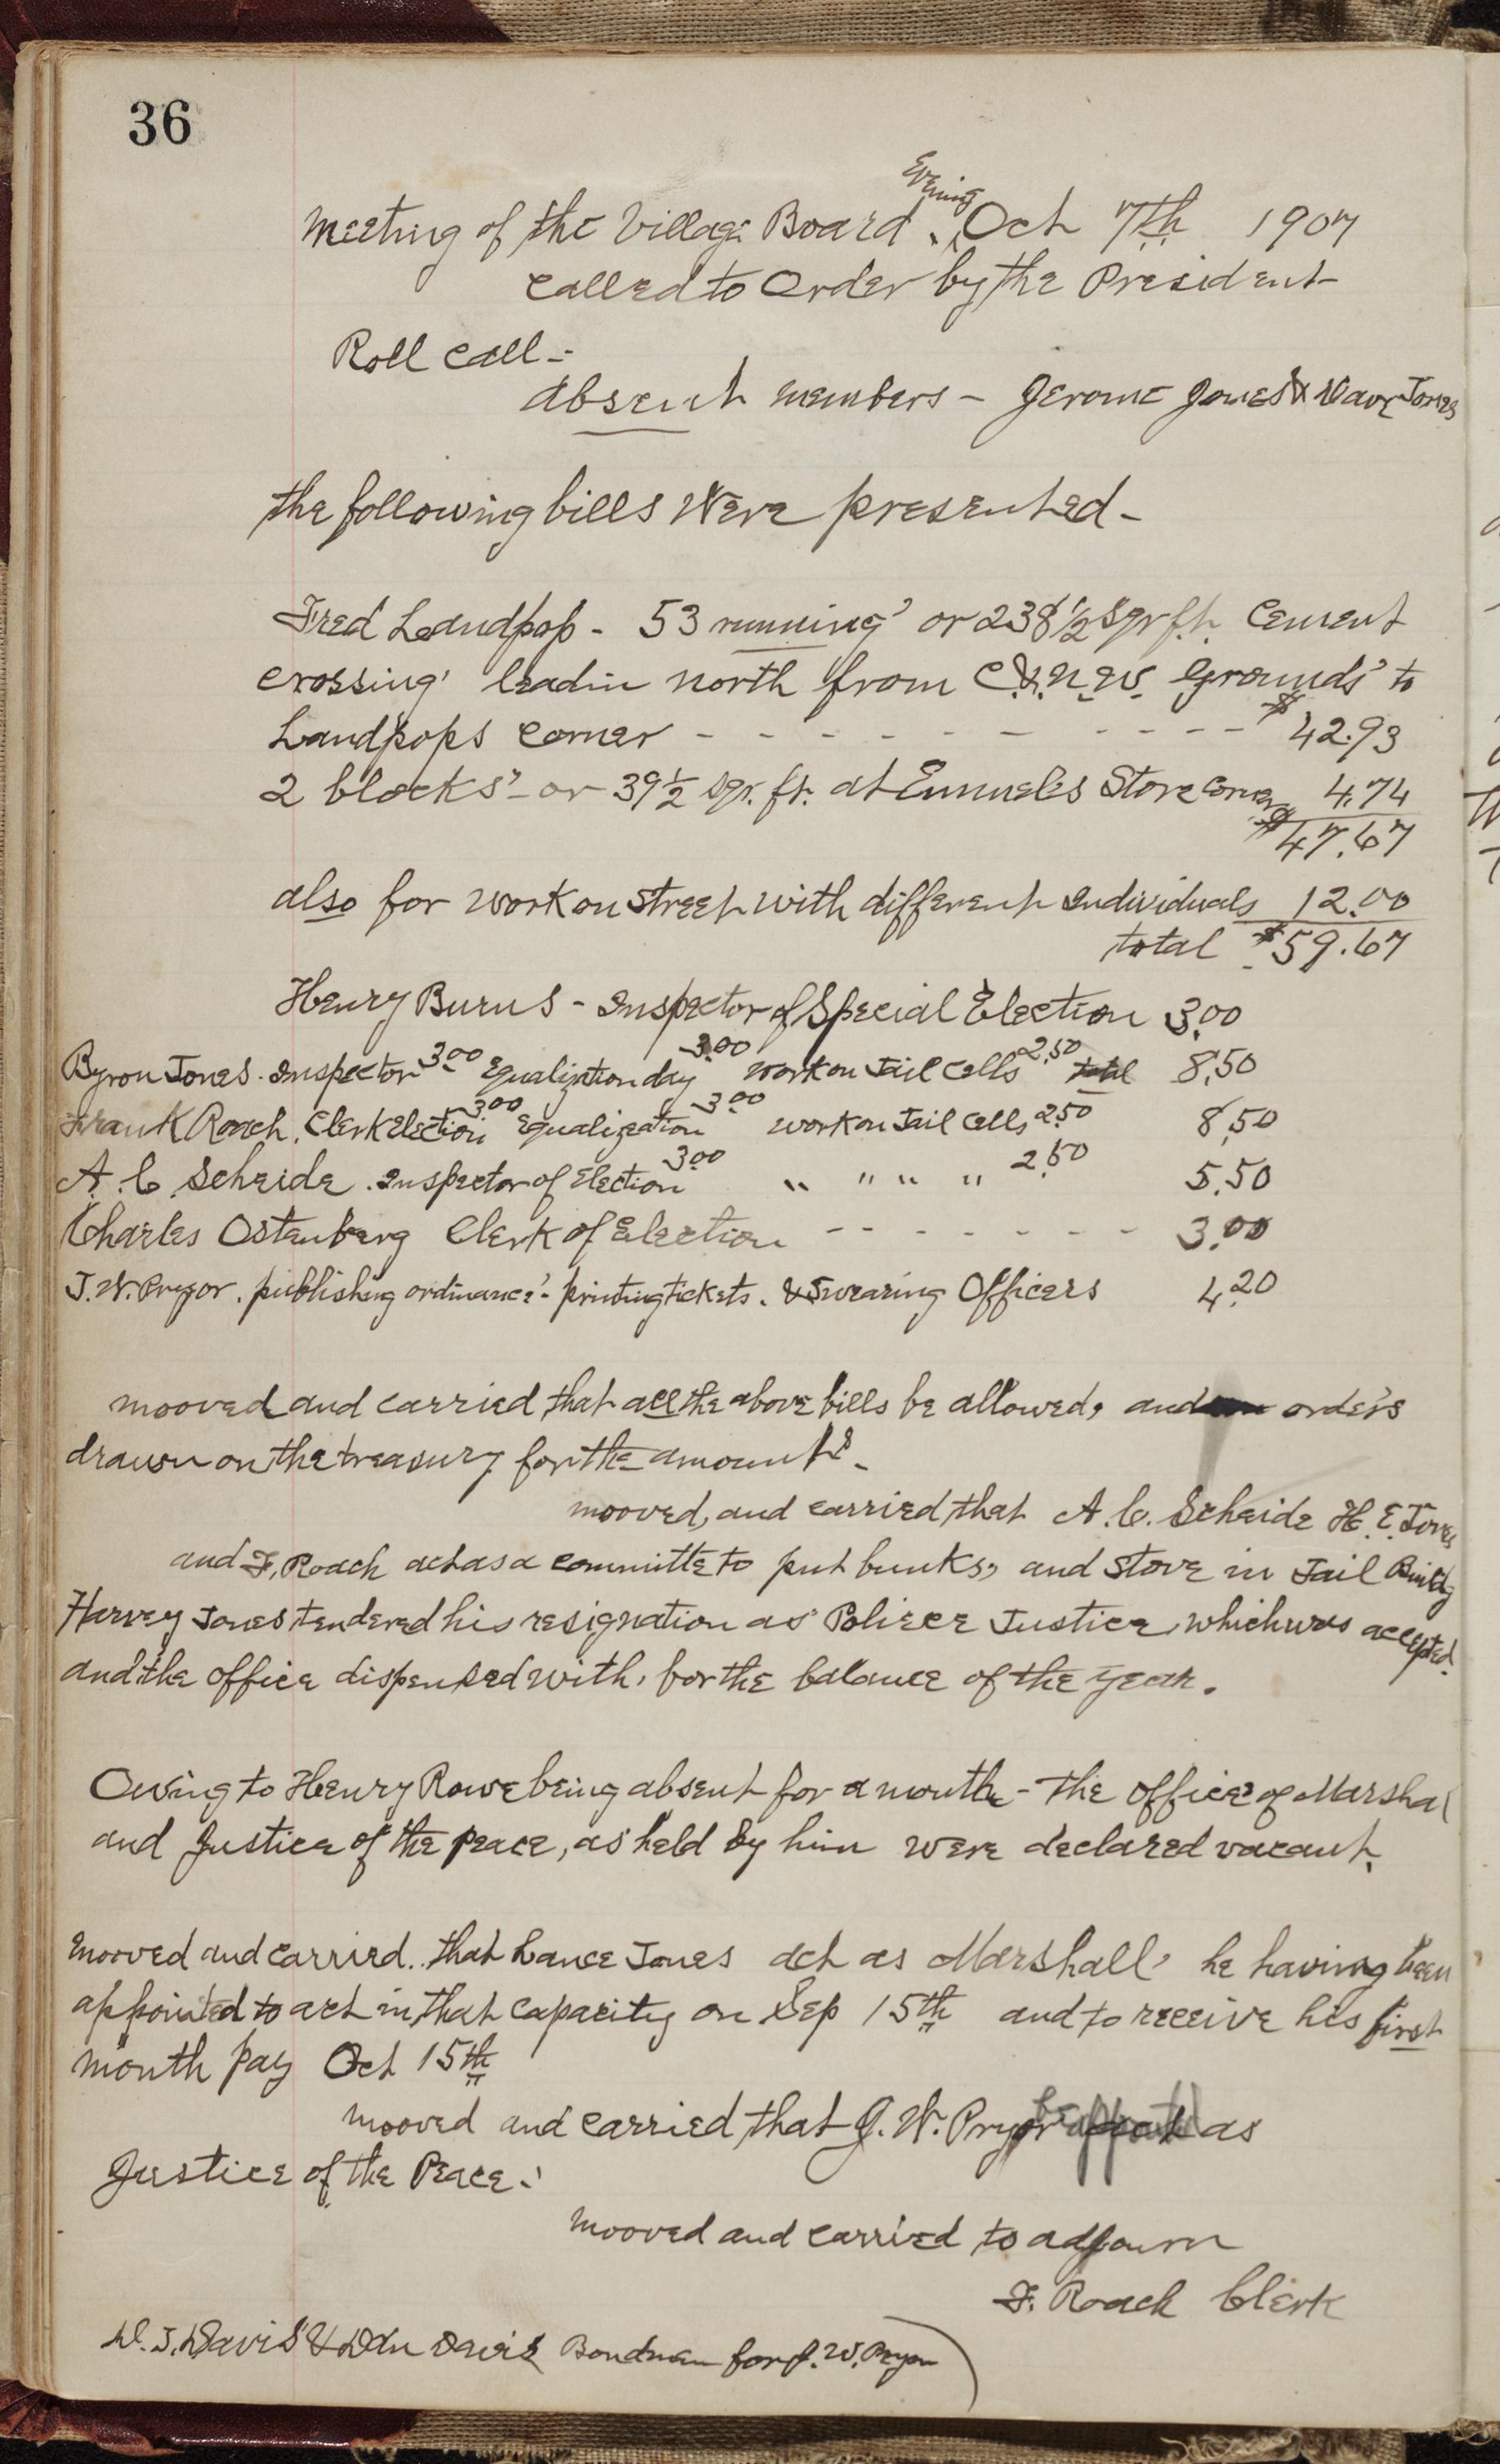 36
Evening
Meeting of the Village Board. ^ Oct 7th 1907
Called to Order by the President
Roll Call -
absent members - Jerome Jones & Dave Jones
the following bills Were presented -
Fred Landpap - 53 running' or 238 1/2 sqr ft. Cement
crossing' leadin north from C.&.N.W. Grounds' to
Landpaps Corner - - - - - - - - - - $42.93
2 blocks' - or 39 1/2 sqr. ft. at Emmels Store Corner 4.74
$47.67
also for work on street with different individuals 12.00
total $59.67
Henry Burns - Inspector of Special Election 3.00
Byron Jones. Inspector 3.00 Equalization day 3.00 work on Jail Cells 2.50 total 8.50
Frank Roach. Clerk Election 3.00 Equalization 3.00 work on Jail Cells 2.50 8.50
A. C. Scheide. Inspector of Election 3.00 " " " " 2.50 5.50
Charles Ostenberg Clerk of Election - - - - - - - 3.00
J. W. Pryor. publishing ordinance' - printing tickets. & Swearing Officers 4.20
mooved and carried that all the above bills be allowed, and orders
drawn on the treasury for the amounts -
mooved, and carried that A. C. Scheide H. E. Jones
and F. Roach act as a committe to put bunks, and Stove in Jail Buildg
Harvey Jones tendered his resignation as Policee Justice, which was accepted.
and the office dispensed with, for the balance of the year.
Owing to Henry Rowe being absent for a month - the office of Marshal
and Justice of the peace, as held by him were declared vacant.
Mooved and carried.. that Lance Jones act as Marshall' he having been
appointed to act in that capacity on Sep 15th and to receive his first
month pay Oct 15th
mooved and carried that J. W. Pryor be appointed as
Justice of the Peace.
mooved and carried to adjourn
F. Roach Clerk
D. J. Davis & Dan Davis Bondman for J. W. Pryor